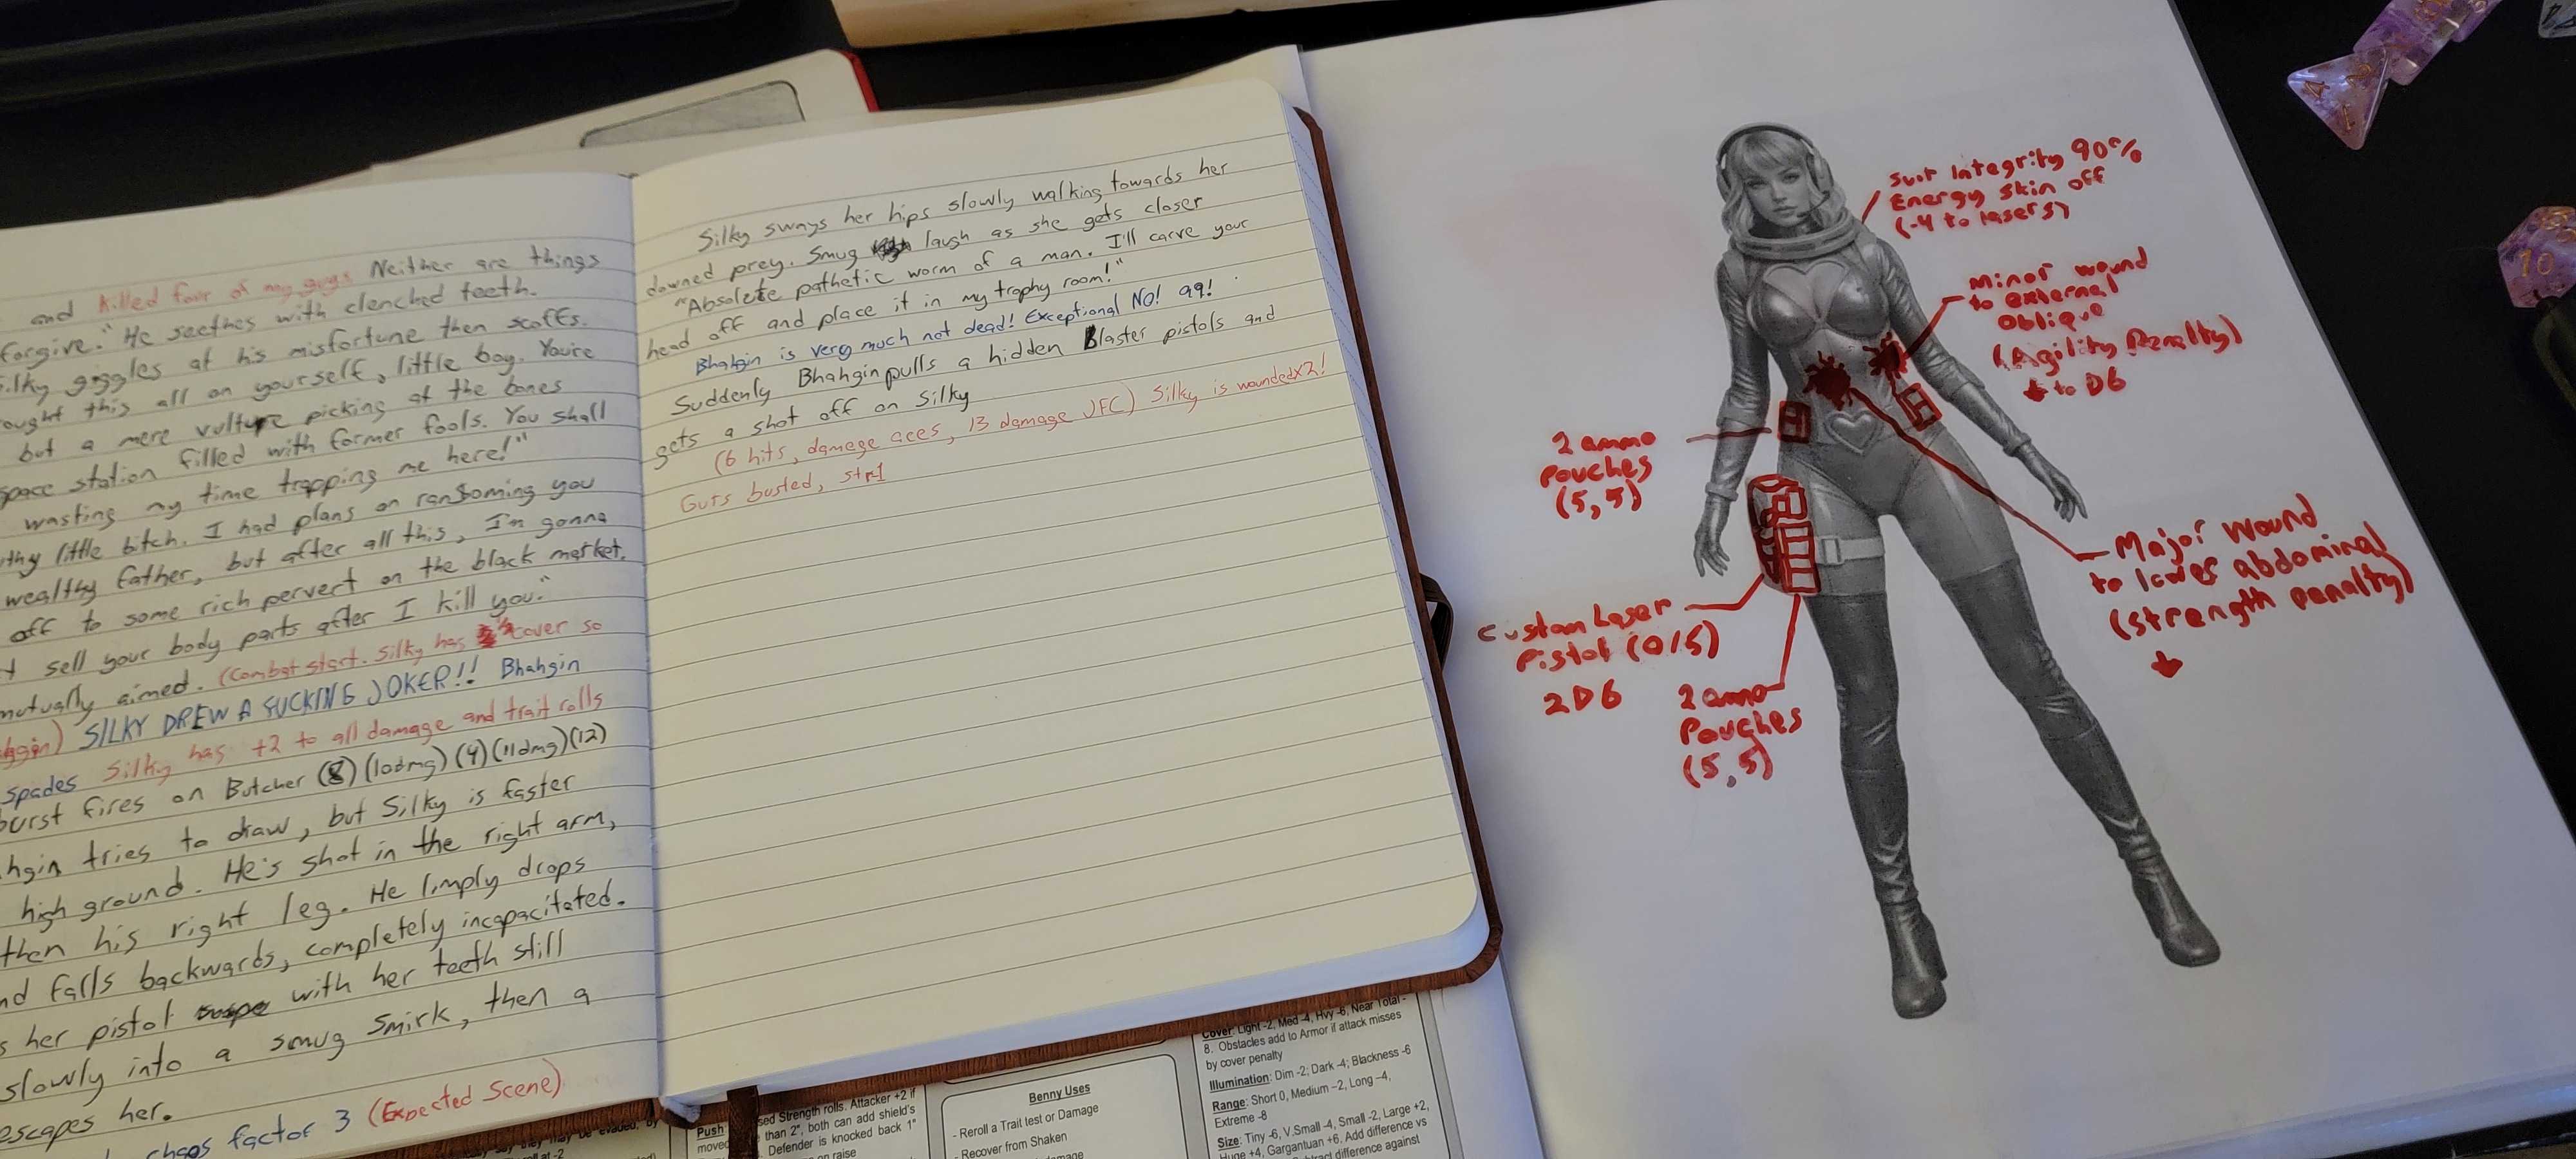 and killed four of my guys Neither are things
forgive." He seethes with clenched teeth.
Silky giggles at his misfortune then scoffs.
ought this all on yourself, little boy. You're
but a mere vulture picking at the bones
space station filled with former fools. You shall
wasting my time trapping me here!"
thy little bitch. I had plans on ransoming you
wealthy father, but after all this, I'm gonna
off to some rich pervert on the black market.
sell your body parts after I kill you."
mutually aimed. (Combat start. Silky has cover so
hgin) SILKY DREW A FUCKING JOKER!! Bhahgin
spades Silky has +2 to all damage and trait rolls
burst fires on Butcher (8) (10dmg) (4) (11dmg) (12)
hgin tries to draw, but Silky is faster
high ground. He's shot in the right arm,
then his right leg. He limply drops
nd falls backwards, completely incapacitated.
s her pistol with her teeth still
slowly into a smug smirk, then a
escapes her.
chaos factor 3 (Expected Scene)
Silky sways her hips slowly walking towards her
downed prey. Smug laugh as she gets closer
"Absolute pathetic worm of a man. I'll carve your
head off and place it in my trophy room!"
Bhahgin is very much not dead! Exceptional NO! 99!
Suddenly Bhahgin pulls a hidden Blaster pistols and
gets a shot off on Silky
(6 hits, damage aces, 13 damage JFC) Silky is woundedx2!
Guts busted, str-1
Suit Integrity 90%
Energy skin off
(-4 to lasers)
Minor wound
to external
Oblique
(Agility Penalty)
↓ to D6
2 ammo
Pouches
(5,5)
Custom Laser
Pistol (0/5)
2D6
2 ammo
Pouches
(5,5)
Major Wound
to lower abdominal
(strength penalty)
↓
Push
sed Strength rolls. Attacker +2 if
moved than 2", both can add shield's
Defender is knocked back 1"
on raise
Benny Uses
- Reroll a Trait test or Damage
- Recover from Shaken
Cover: Light -2, Med -4, Hvy -6, Near Total -
8. Obstacles add to Armor if attack misses
by cover penalty
Illumination: Dim -2; Dark -4; Blackness -6
Range: Short 0, Medium -2, Long -4,
Extreme -8
Size: Tiny -6, V.Small -4, Small -2, Large +2,
Huge +4, Gargantuan +6, Add difference vs
difference against
10